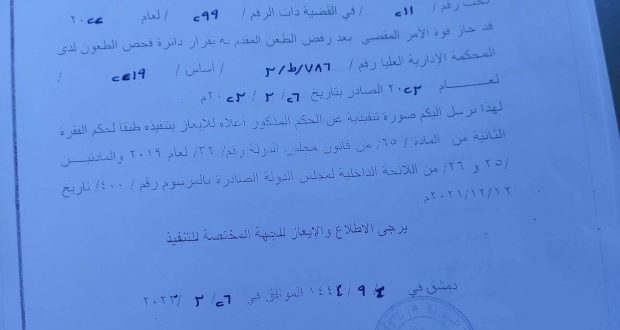 تحت رقم / ٢١١ / في القضية ذات الرقم / ٢٩٩ / لعام ٢٠٢٢
قد حاز قوة الأمر المقضي بعد رفض الطعن المقدم به بقرار دائرة فحص الطعون لدى
المحكمة الإدارية العليا رقم / ٧٨٦/ط/٢ / أساس / ٢٤١٩ /
لعــــام ٢٠٢٣ الصادر بتاريخ ٢٦ / ٢ / ٢٠٢٣م .
لهذا نرسل اليكم صورة تنفيذية عن الحكم المذكور أعلاه للايعاز بتنفيذه طبقاً لحكم الفقرة
الثانية من المادة /٦٥/ من قانون مجلس الدولة رقم /٣٢/ لعام ٢٠١٩ والمادتيــن
/٢٥ و ٢٦/ من اللائحة الداخلية لمجلس الدولة الصادرة بالمرسوم رقم /٤٠٠/ تاريخ
٢٠٢١/١٢/١٢م.
يرجى الاطلاع والإيعاز للجهة المختصة للتنفيذ
دمشق في / ٩ / ١٤٤٤ الموافق في ٢٦ / ٢ / ٢٠٢٣